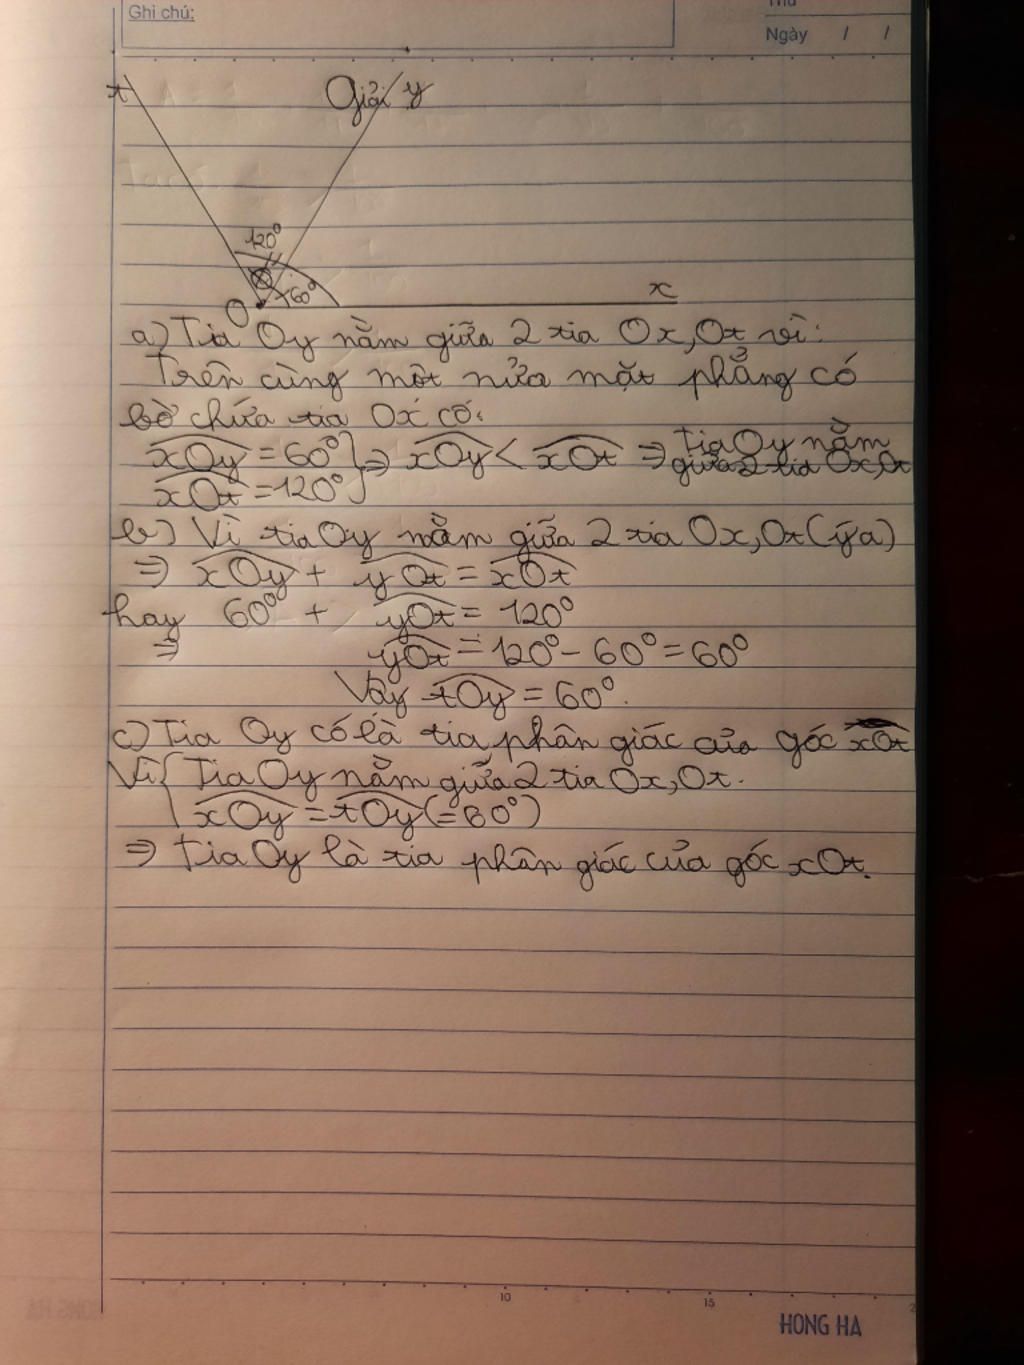 Ghi chú:
Thứ
Ngày / /
t
Giải
y
120°
60°
O
x
a) Tia Oy nằm giữa 2 tia Ox, Ot vì:
Trên cùng một nửa mặt phẳng có
bờ chứa tia Ox có:
xOy = 60° } => xOy < xOt => Tia Oy nằm
giữa 2 tia Ox, Ot
xOt = 120°
b) Vì tia Oy nằm giữa 2 tia Ox, Ot (ý a)
=> xOy + yOt = xOt
hay 60° + yOt = 120°
=> yOt = 120° - 60° = 60°
Vậy tOy = 60°.
c) Tia Oy có là tia phân giác của góc xOt
Vì { Tia Oy nằm giữa 2 tia Ox, Ot.
xOy = tOy (= 60°)
=> Tia Oy là tia phân giác của góc xOt.
10
15
HONG HA